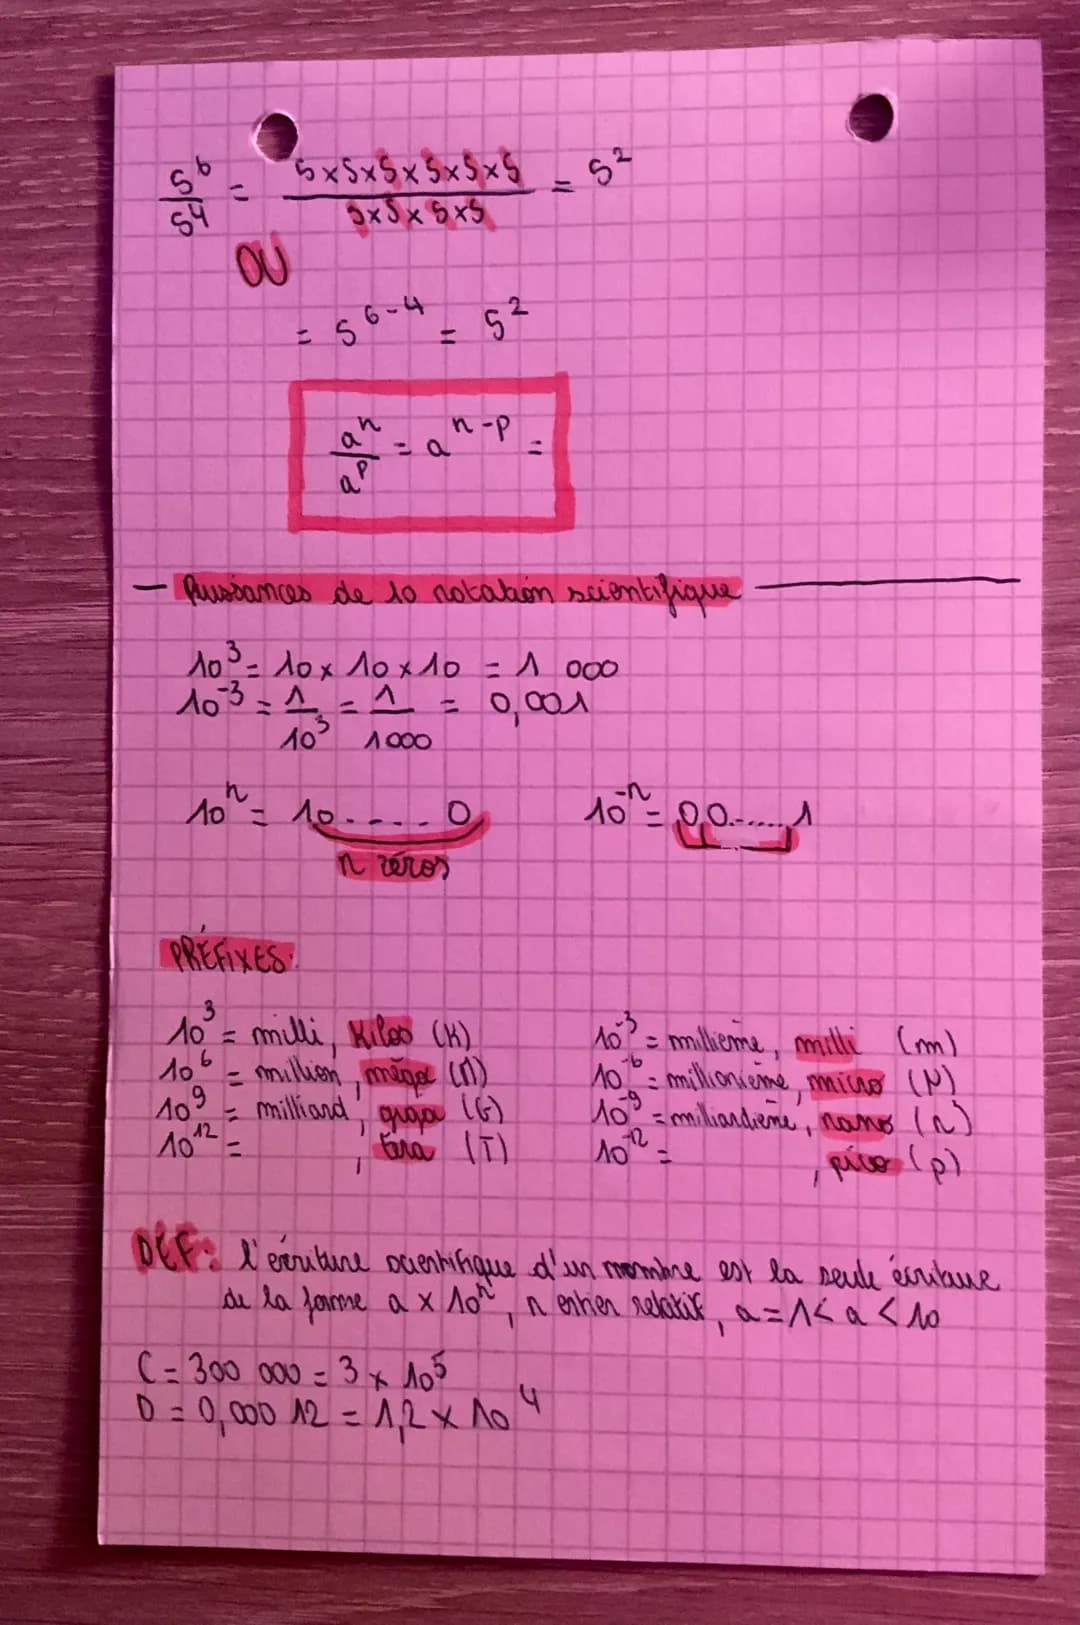 5⁶/5⁴ = 5×5×5×5×5×5 / 5×5×5×5 = 5²
OU
= 5⁶⁻⁴ = 5²
aⁿ/aᵖ = aⁿ⁻ᵖ =
— Puissances de 10 notation scientifique —
10³ = 10 × 10 × 10 = 1 000
10⁻³ = 1/10³ = 1/1000 = 0,001
10ⁿ = 10....0 10⁻ⁿ = 0,0......1
n zéros
PRÉFIXES:
10³ = milli, Kiloo (K) 10⁻³ = millième, milli (m)
10⁶ = million, méga (M) 10⁻⁶ = millionième, micro (μ)
10⁹ = milliard, giga (G) 10⁻⁹ = milliardième, nano (n)
10¹² = , tera (T) 10⁻¹² = , pico (p)
DEF: l'écriture scientifique d'un nombre est la seule écriture
de la forme a × 10ⁿ, n entier relatif, a = 1 < a < 10
C = 300 000 = 3 × 10⁵
D = 0,000 12 = 1,2 × 10⁴